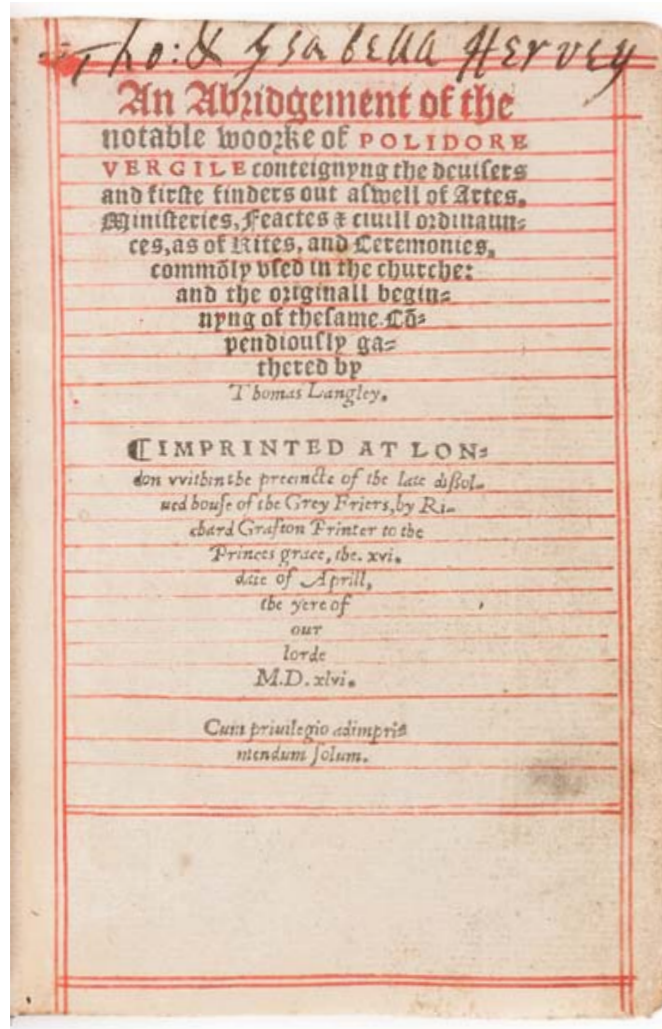 Tho: & Ysabella Hervey
An Abridgement of the
notable woorke of POLIDORE
VERGILE conteignyng the deuisers
and firste finders out aswell of Artes,
Ministeries, Feactes & ciuill ordinaun=
ces, as of Rites, and Ceremonies,
commōly vsed in the churche:
and the originall begin=
nyng of thesame. Cō=
pendiously ga=
thered by
Thomas Langley.
¶ IMPRINTED AT LON=
don vvithin the precincte of the late dißol=
ued house of the Grey Friers, by Ri=
chard Grafton Printer to the
Princes grace, the. xvi.
daie of Aprill,
the yere of
our
lorde
M.D. xlvi.
Cum priuilegio ad impri=
mendum solum.